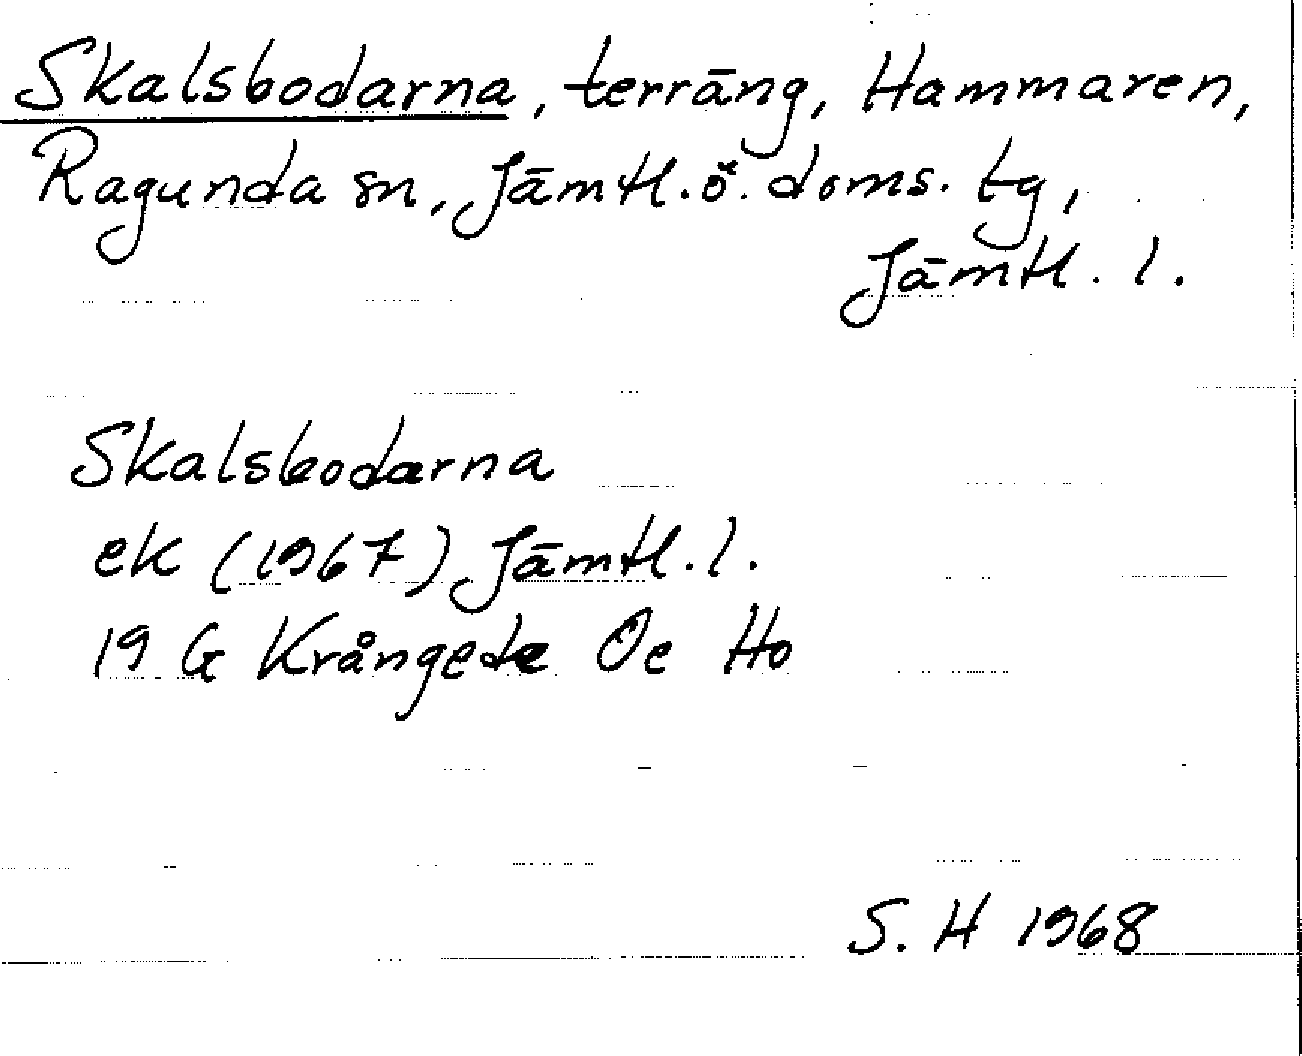 Skalsbodarna, terräng, Hammaren,
Ragunda sn, Jämtl. ö. doms. tg,
Jämtl. l.
Skalsbodarna
ek (1967) Jämtl. l.
19 G Krångede Öe Ho
S. H 1968